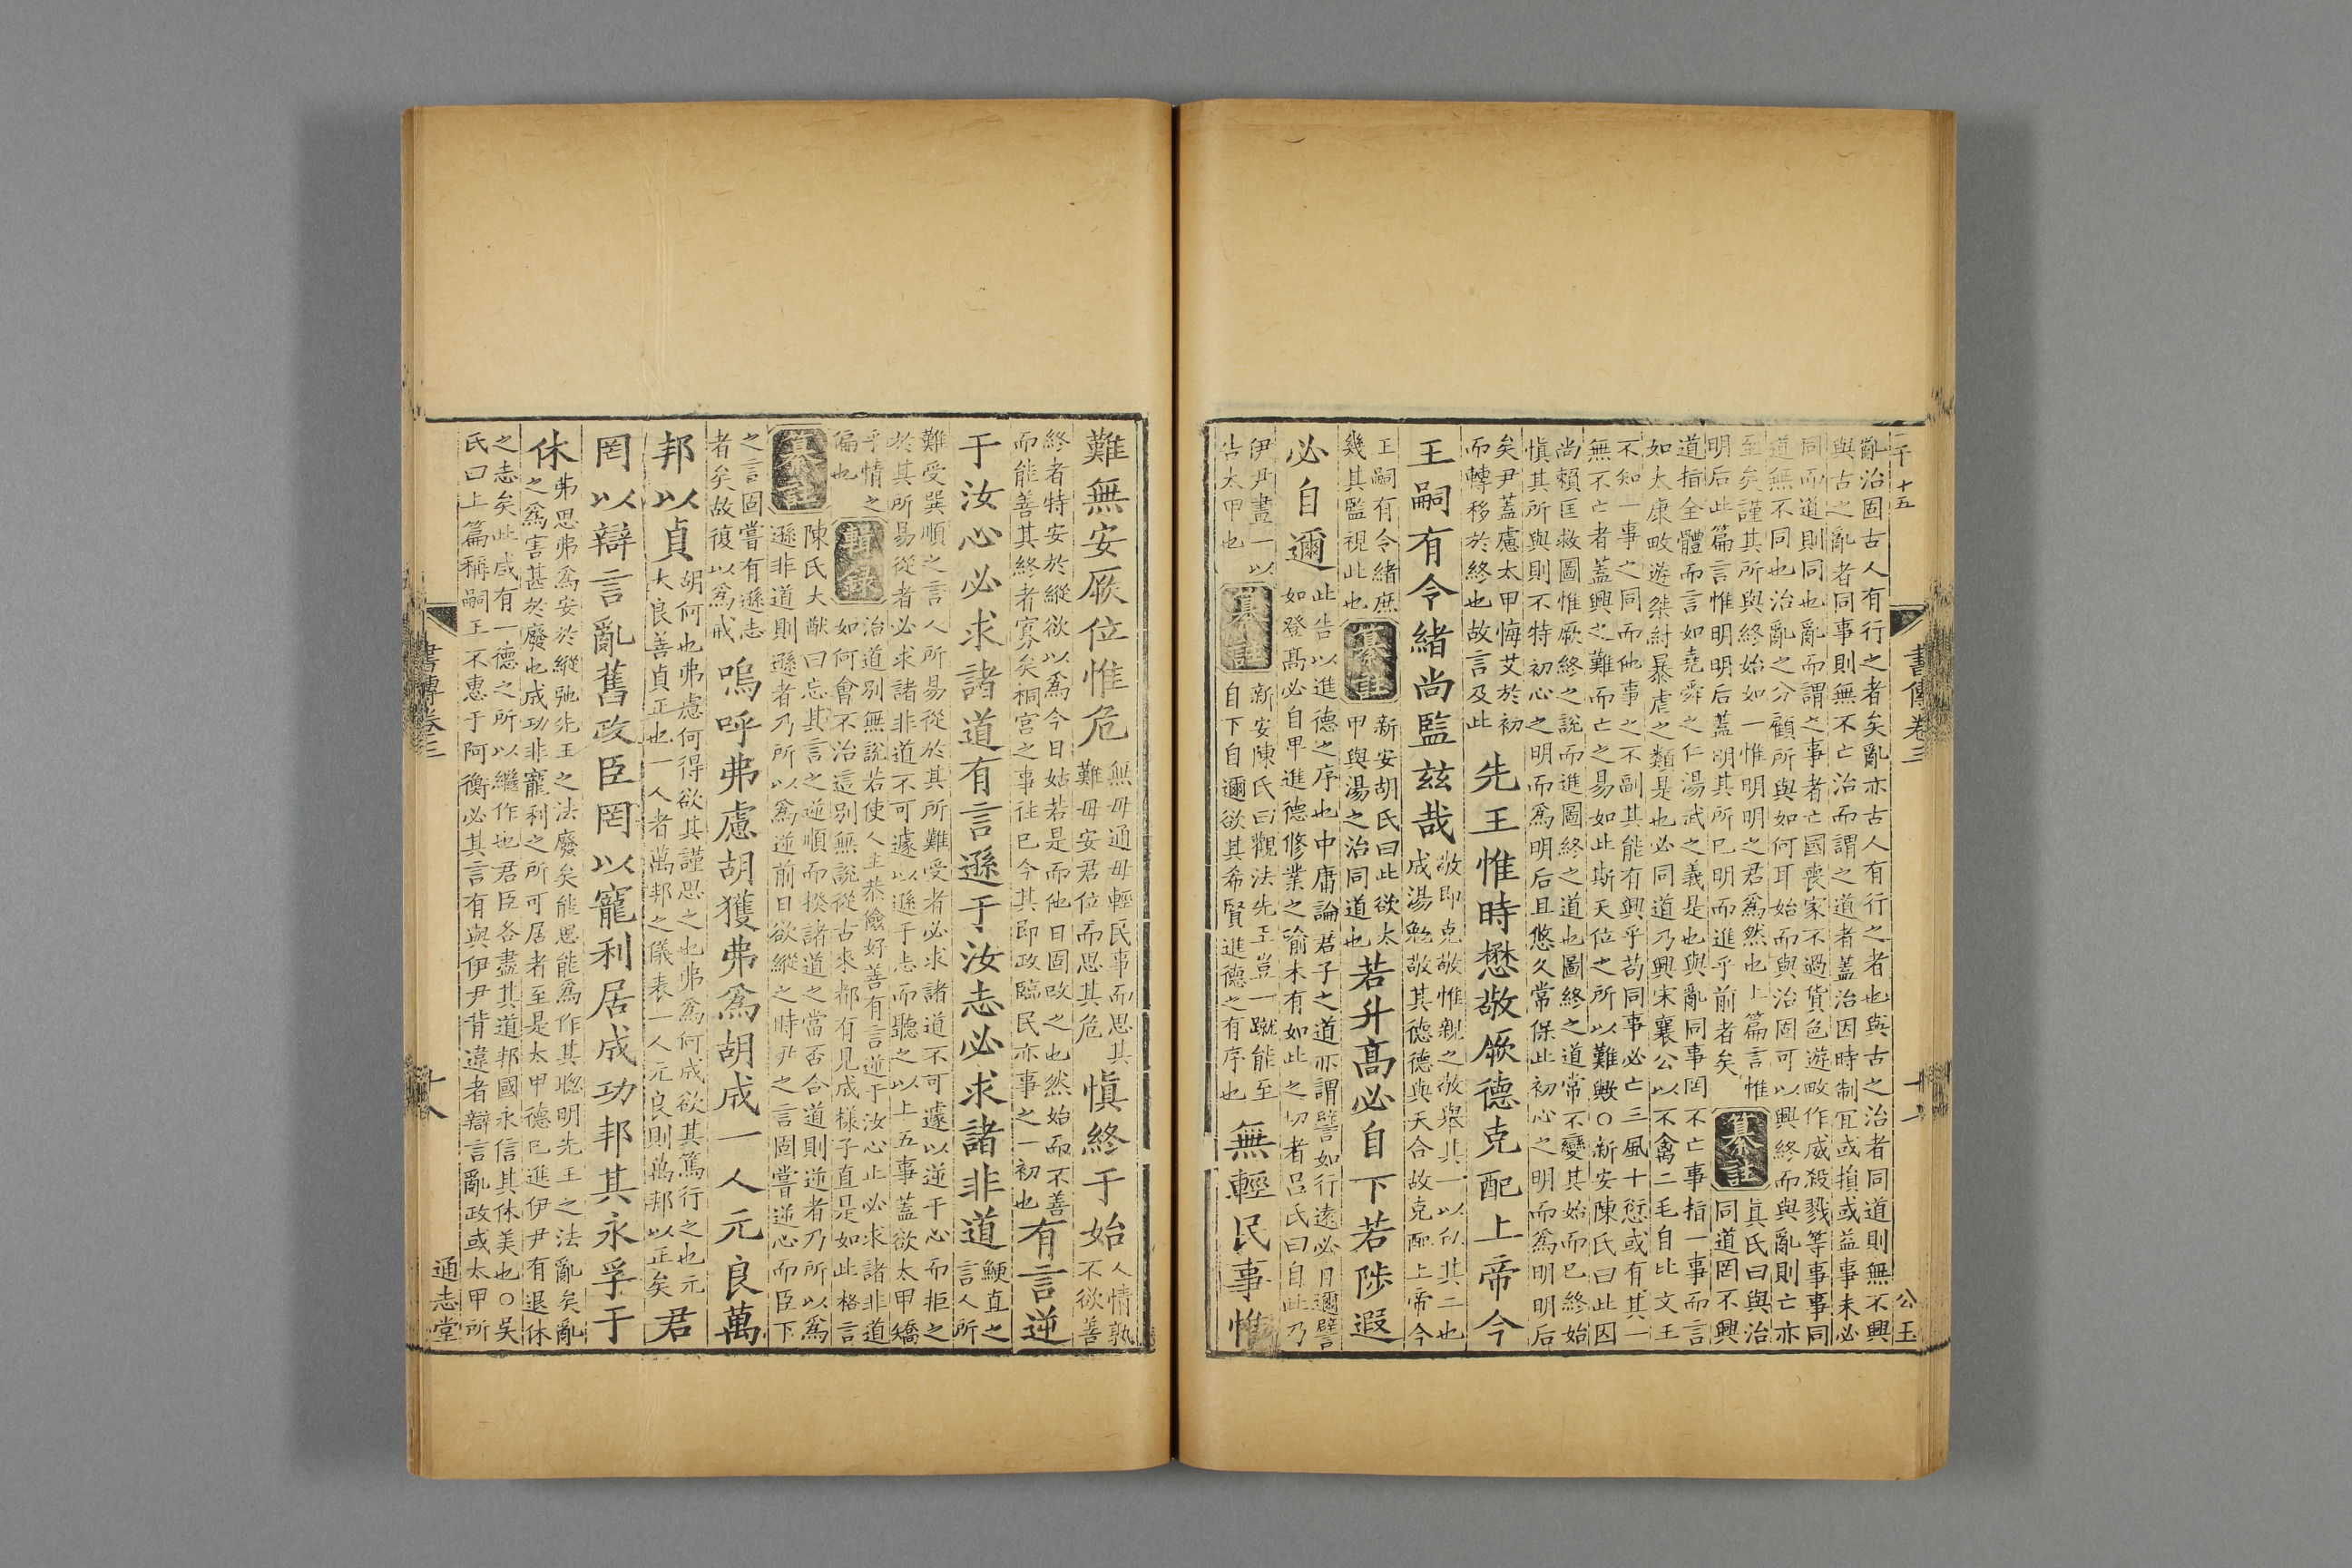 千十五
書傳卷三
十一
公玉
亂治固古人有行之者矣亂亦古人有行之者也與古之治者同道則無不興
與古之亂者同事則無不亡治而謂之道者蓋治因時制宜或損或益事未必
同而道則同也亂而謂之事者亡國喪家不過貨色遊畋作威殺戮等事事同
道無不同也治亂之分顧所與如何耳始而與治固可以興終而與亂則亡亦
至矣謹其所與終始如一惟明明之君爲然也上篇言惟
明后此篇言惟明明后蓋明其所已明而進乎前者矣
纂註
眞氏曰與治
同道罔不興
道指全體而言如堯舜之仁湯武之義是也與亂同事罔不亡事指一事而言
如太康畋遊桀紂暴虐之類是也必同道乃興宋襄公以不禽二毛自比文王
不知一事之同而他事之不副其能有興乎苟同事必亡三風十愆或有其一
無不亡者蓋興之難而亡之易如此斯天位之所以難歟○新安陳氏曰此因
尚賴匡救圖惟厥終之說而進圖終之道也圖終之道常不變其始而已終始
愼其所與則不特初心之明而爲明后且悠久常保此初心之明而爲明明后
矣尹蓋慮太甲悔艾於初
而轉移於終也故言及此
先王惟時懋敬厥德克配上帝今
王嗣有令緖尚監茲哉
敬即克敬惟親之敬舉其一以包其二也
成湯勉敬其德德與天合故克配上帝今
王嗣有令緖庶
幾其監視此也
纂註
新安胡氏曰此欲太
甲與湯之治同道也
若升高必自下若陟遐
必自邇
此告以進德之序也中庸論君子之道亦謂譬如行遠必自邇譬
如登高必自卑進德修業之喻未有如此之切者呂氏曰自此乃
伊尹畫一以
告太甲也
纂註
新安陳氏曰觀法先王豈一蹴能至
自下自邇欲其希賢進德之有序也
無輕民事惟
難無安厥位惟危
無毋通毋輕民事而思其
難毋安君位而思其危
愼終于始
人情孰
不欲善
終者特安於縱欲以爲今日姑若是而他日固改之也然始而不善
而能善其終者寡矣桐宮之事往已今其即政臨民亦事之一初也
有言逆
于汝心必求諸道有言遜于汝志必求諸非道
鯁直之
言人所
難受巽順之言人所易從於其所難受者必求諸道不可遽以逆于心而拒之
於其所易從者必求諸非道不可遽以遜于志而聽之以上五事蓋欲太甲矯
乎情之
偏也
輯錄
治道別無說若使人主恭儉好善有言逆于汝心止必求諸非道
如何會不治這別無說從古來都有見成樣子直是如此格言
纂註
陳氏大猷曰忘其言之逆順而揆諸道之當否合道則逆者乃所以爲
遜非道則遜者乃所以爲逆前日欲縱之時尹之言固嘗逆心而臣下
之言固嘗有遜志
者矣故復以爲戒
嗚呼弗慮胡獲弗爲胡成一人元良萬
邦以貞
胡何也弗慮何得欲其謹思之也弗爲何成欲其篤行之也元
大良善貞正也一人者萬邦之儀表一人元良則萬邦以正矣
君
罔以辯言亂舊政臣罔以寵利居成功邦其永孚于
休
弗思弗爲安於縱弛先王之法廢矣能思能爲作其聰明先王之法亂矣亂
之爲害甚於廢也成功非寵利之所可居者至是太甲德已進伊尹有退休
之志矣此咸有一德之所以繼作也君臣各盡其道邦國永信其休美也○吳
氏曰上篇稱嗣王不惠于阿衡必其言有與伊尹背違者辯言亂政或太甲所
書傳卷三
十八
通志堂